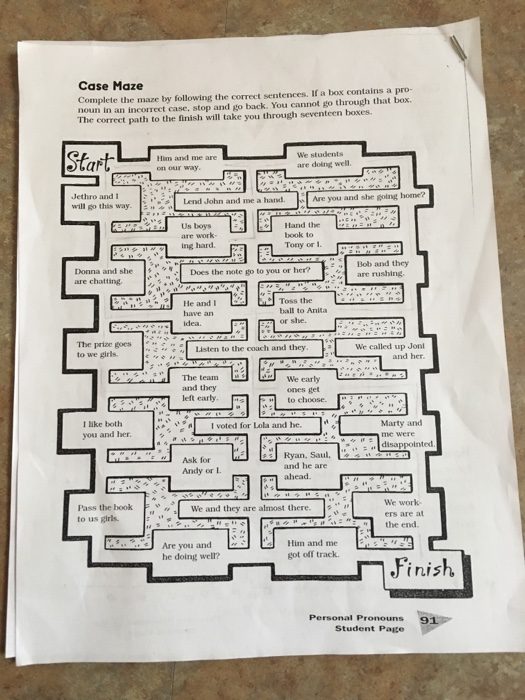 Case Maze
Complete the maze by following the correct sentences. If a box contains a pro-
noun in an incorrect case, stop and go back. You cannot go through that box.
The correct path to the finish will take you through seventeen boxes.
Start
Him and me are
on our way.
We students
are doing well.
Jethro and I
will go this way.
Lend John and me a hand.
Are you and she going home?
Us boys
are work-
ing hard.
Hand the
book to
Tony or I.
Donna and she
are chatting.
Does the note go to you or her?
Bob and they
are rushing.
He and I
have an
idea.
Toss the
ball to Anita
or she.
The prize goes
to we girls.
Listen to the coach and they.
We called up Joni
and her.
The team
and they
left early.
We early
ones get
to choose.
I like both
you and her.
I voted for Lola and he.
Marty and
me were
disappointed.
Ask for
Andy or I.
Ryan, Saul,
and he are
ahead.
Pass the book
to us girls.
We and they are almost there.
We work-
ers are at
the end.
Are you and
he doing well?
Him and me
got off track.
Finish
Personal Pronouns
Student Page
91